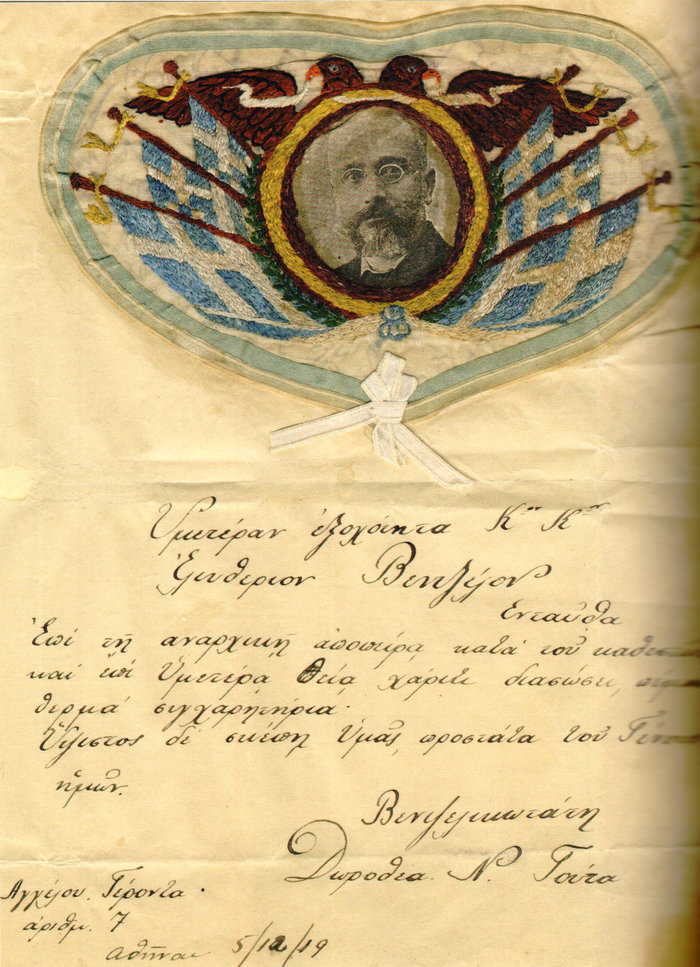 Ὑμετέραν ἐξοχότητα Κον Κον
Ἐλευθέριον Βενιζέλον
Ἐνταῦθα
Ἐπὶ τῇ ἀναρχικῇ ἀποπείρᾳ κατὰ τοῦ
καὶ ἐπὶ Ὑμετέρᾳ θείᾳ χάριτι διασώσει,
θερμὰ σιγχαρητήρια.
Ὕψιστος δὲ σκέπῃ Ὑμᾶς, προστάτα τοῦ
ἡμῶν.
Βενιζελικωτάτη
Δωροθέα Ν. Γούτα
Ἀγγέλου Γέροντα.
ἀριθμ. 7
Ἀθῆναι 5/12/19